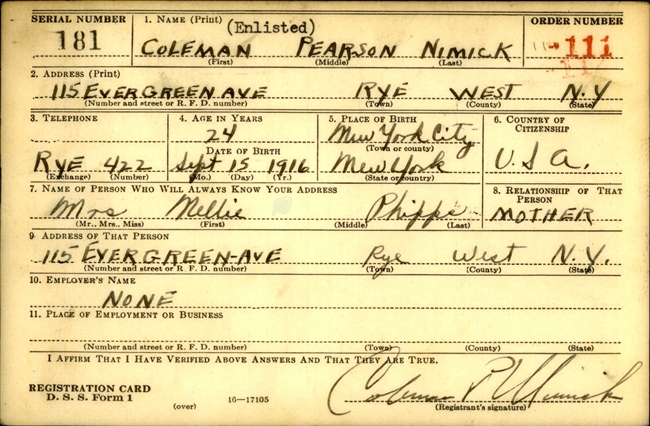 SERIAL NUMBER 1. NAME (Print) (Enlisted) ORDER NUMBER
181 COLEMAN PEARSON NIMICK 111
(First) (Middle) (Last)
2. ADDRESS (Print)
115 EVERGREEN AVE RYE WEST N.Y
(Number and street or R. F. D. number) (Town) (County) (State)
3. TELEPHONE 4. AGE IN YEARS 5. PLACE OF BIRTH 6. COUNTRY OF CITIZENSHIP
24 New York City
DATE OF BIRTH (Town or county)
RYE 422 Sept 15 1916 New York U S A.
(Exchange) (Number) (Mo.) (Day) (Yr.) (State or country)
7. NAME OF PERSON WHO WILL ALWAYS KNOW YOUR ADDRESS 8. RELATIONSHIP OF THAT PERSON
Mrs Nellie Phipps MOTHER
(Mr., Mrs., Miss) (First) (Middle) (Last)
9. ADDRESS OF THAT PERSON
115 EVERGREEN-AVE Rye West N.Y.
(Number and street or R. F. D. number) (Town) (County) (State)
10. EMPLOYER'S NAME
NONE
11. PLACE OF EMPLOYMENT OR BUSINESS
(Number and street or R. F. D. number) (Town) (County) (State)
I AFFIRM THAT I HAVE VERIFIED ABOVE ANSWERS AND THAT THEY ARE TRUE.
REGISTRATION CARD Coleman P Nimick
D. S. S. Form 1 (over) 16—17105 (Registrant's signature)